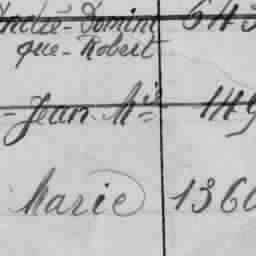 André-Domini 643
que-Robert
- Jean-Mie 149
Marie 1360